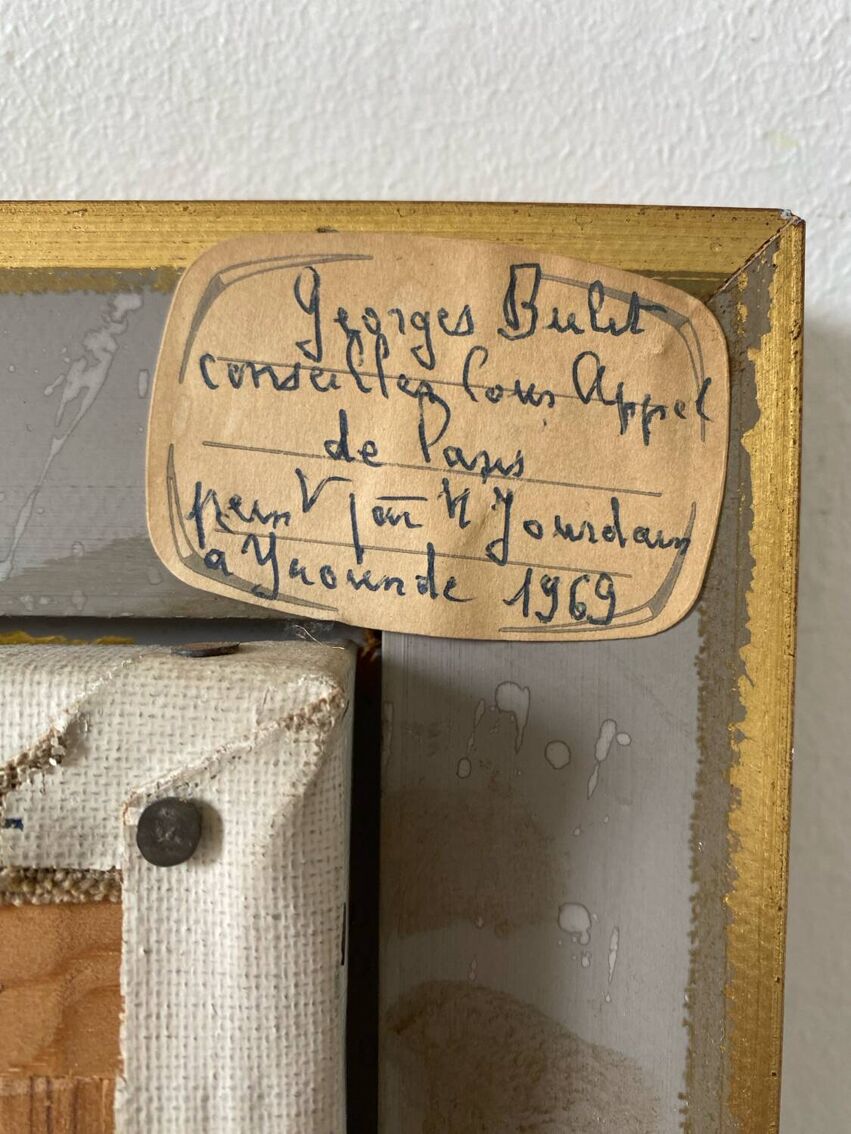 Georges Bulit
conseiller Cour Appel
de Paris
peint par H Jourdain
a Yaounde 1969